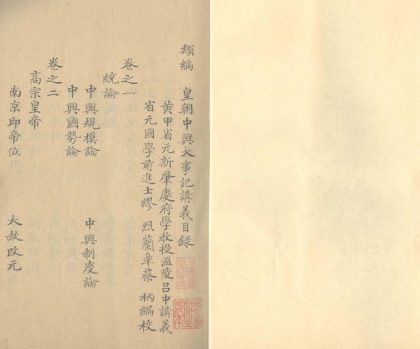 類編 皇朝中興大事記講義目録
黄甲省元新肇慶府學教授溫陵呂中講義
省元國學前進士繆 烈蘭臯蔡 柄編校
卷之一
統論
中興規模論 中興制度論
中興國勢論
卷之二
高宗皇帝
南京即帝位 大赦改元